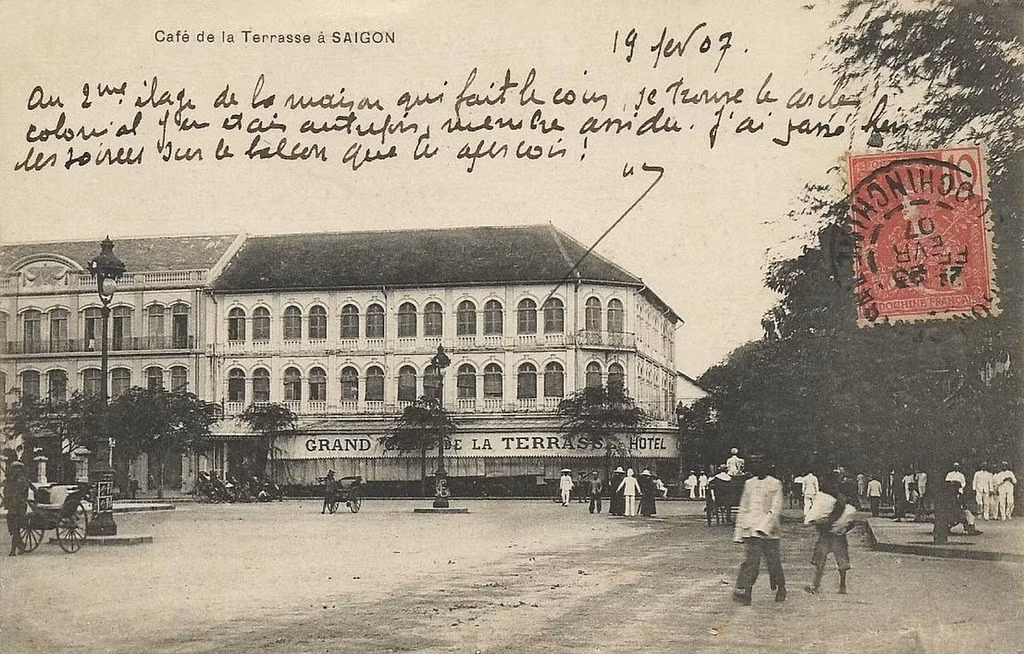 Café de la Terrasse à SAIGON
19 fev 07.
Au 2me étage de la maison qui fait le coin, se trouve le cercle
colonial j'en étais autrefois, membre assidu. J'ai passé bien
des soirées sur le balcon que tu aperçois!
10
COCHINCHINE
21
FEVR
07
INDOCHINE FRANÇAISE
GRAND DE LA TERRASSE HOTEL